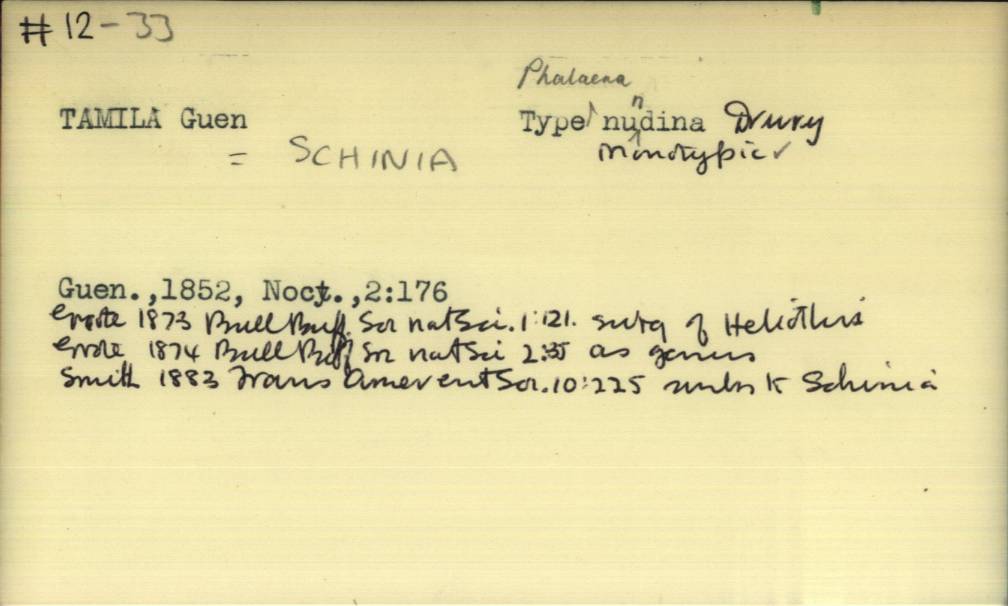 #12-33
Phalaena
TAMILA Guen
Type nundina Drury
= SCHINIA
monotypic ✓
Guen.,1852, Noct.,2:176
Grote 1873 Bull Buff. Soc nat Sci. 1:121. subg of Heliothis
Grote 1874 Bull Buff Soc nat Sci 2:35 as genus
Smith 1883 Trans Amer ent Soc. 10:225 sunk to Schinia